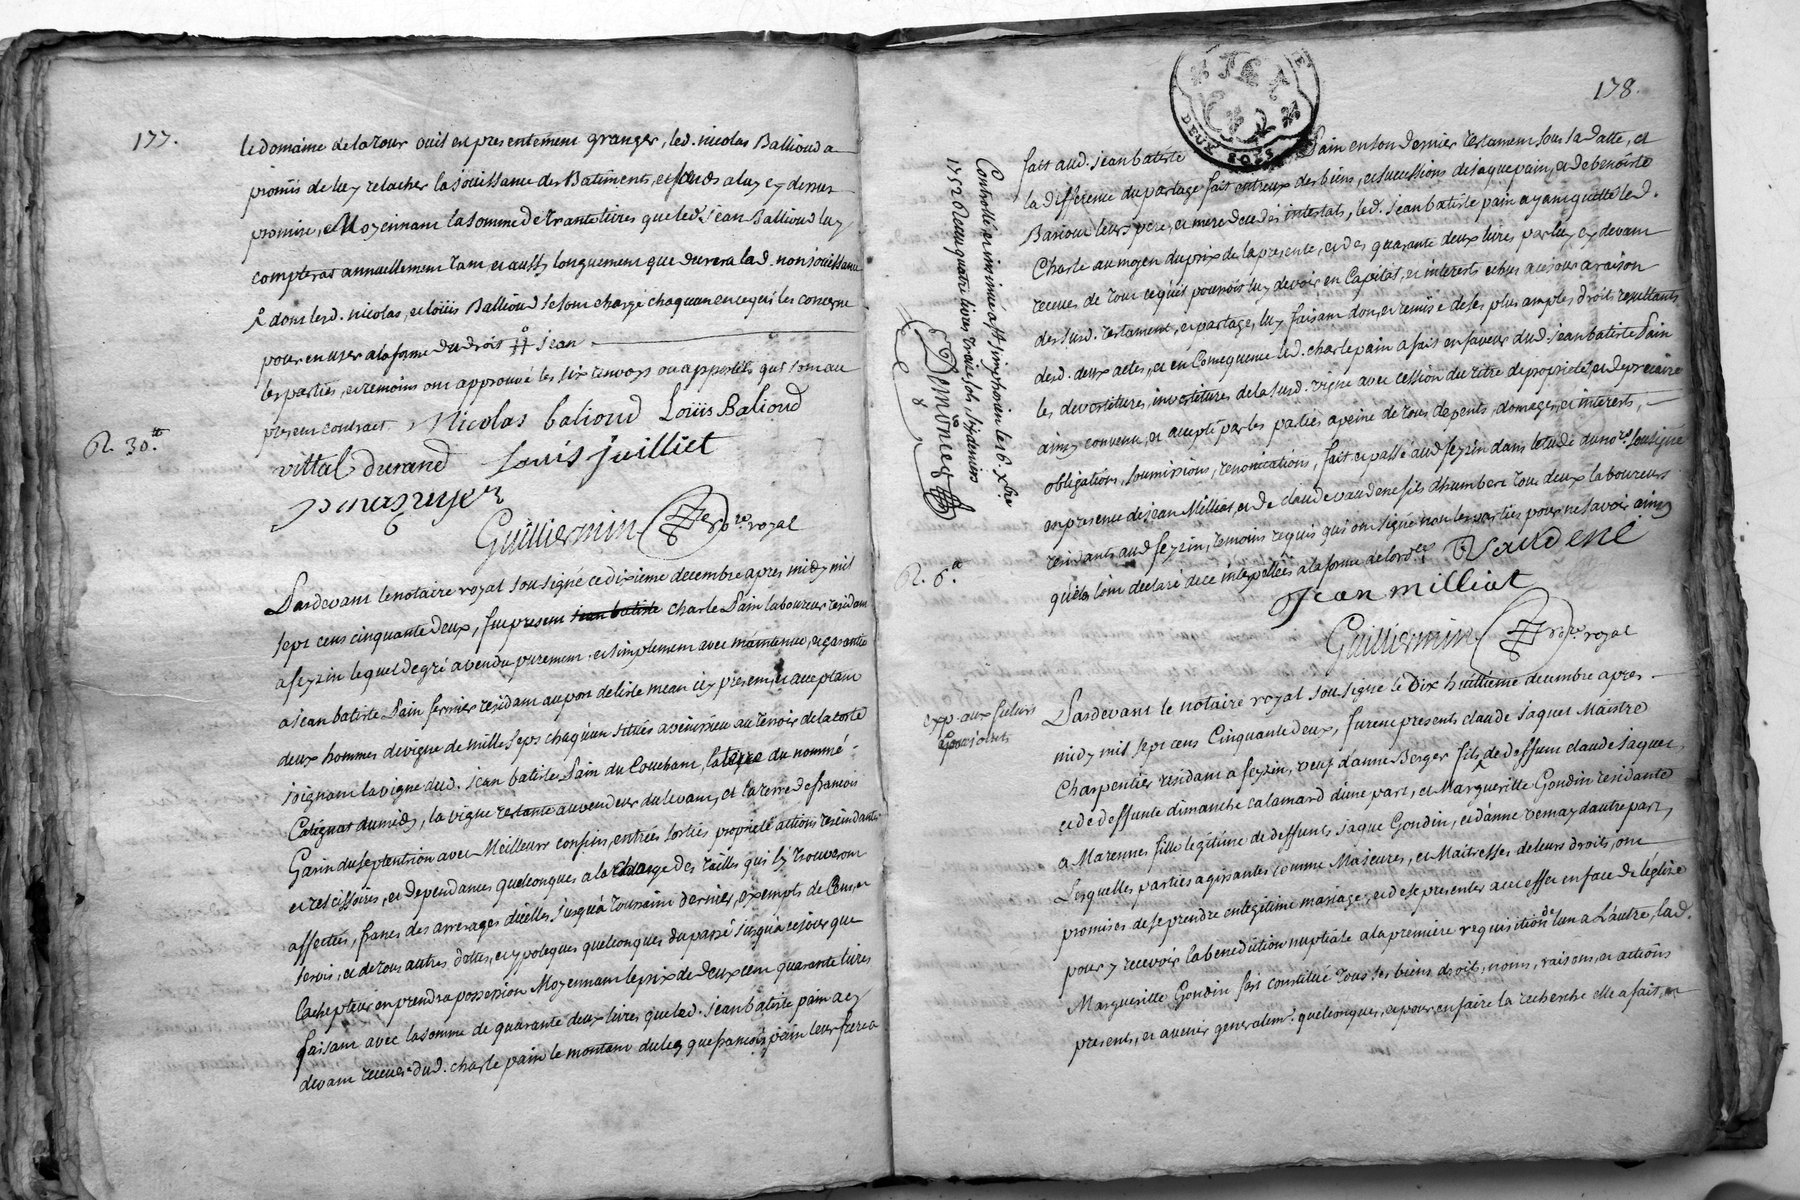 177.
le domaine de la tour ou il es presentement granger, led. nicolas Ballioud a
promis de luy relacher la joüissance des Batiments, et fonds a luy cy dessus
promise, Moyennant la somme de trante livres que led. Jean Ballioud luy
compteras annuellement tant, et aussy longuement que durera lad. non joüissance
dont lesd. nicolas, et loüis Ballioud se sont chargé chaquun en ce qui les concerne
pour en user a la forme du droit # jean
les parties, et temoins ont approuvé les six renvoys ou apportés qui sont au
present contract
Nicolas balioud Loüis Balioud
R. 30.tt
vittal durand Louis Juilliet
Guilliermin no.re royal
Pardevant le notaire royal sousigné ce dixieme decembre apres midy mil
sept cens cinquante deux, fut present jean batiste charle Pain laboureur residant
a feyzin lequel de gré a vendu purement et simplement avec maintenüe, et garantie
a jean batiste Pain fermier residant au port de lisle mean icy present, et acceptant
deux hommes de vigne de mille seps chaquun situés a au terroir de la coste
joignant la vigne dud. jean batiste Pain du Couchant, la terre du nommé
Catignat du midy, la vigne restante au vendeur du levant, et la terre de francois
Garin du septentrion avec Meilleurs confins, entrées sorties proprieté actions rescindantes
et rescissoires, et dependances quelconques a la charge des tailles qui s'y trouveront
affectées, francs des arrerages dicelles jusqu'a toussaint dernier, exempts de Cens, et
servis, et de tous autres dettes, et ypoteques quelconques du passé jusqu'a ce jour que
l'achepteur en prendra possession Moyennant le prix de Deux cent quarante livres
faisant avec la somme de quarante deux livres que led. jean batiste pain a cy
devant receüe dud. charle pain le montant du leg que francois pain leur frere a
178.
DEUX SOLS
fait aud. jean batiste Pain en son dernier testament sous sa datte, et
la difference du partage fait entreux des biens, et successions de jaque pain, et de benoiste
Barioux leurs pere, et mere decedés intestats, led. jean batiste pain ayant quitté led.
Charle au moyen du prix de la presente, et des quarante deux livres par luy cy devant
receues de tout ce qu'il pouvoit luy devoir en Capital, et interests echus a ce jour a raison
des susd. testament, et partage, luy faisant don, et remise de ses plus amples droits resultants
desd. deux actes, et en Consequence led. charle pain a fait en faveur dud. jean batiste Pain
les devestitures, investitures de la susd. vigne avec cession du titre de proprieté, et de precaire
ainsy convenu, et accepté par les parties a peine de tous depents, domages, et interests,
obligations, soumissions, renonciations, fait et passé aud. feyzin dans l'etude du no.re sousigné
en presence de jean Milliat, et de claude vaudene fils d'humbert tous deux laboureurs
residants aud. feyzin, temoins requis qui ont signé non les parties pour ne savoir ainsy
qu'elles l'ont declaré de ce interpellées a la forme de l'ord.ce Vaudene
Jean milliat
Guilliermin no.re royal
Controllé et insinué a st. simphorien le 16. xbre
1752 Receu quatre livres treize sols, six deniers
R. 6.tt
Pardevant le notaire royal sousigné le Dix huittieme decembre apres
midy mil sept cens Cinquante deux, furent presents claude jaquet Maistre
Charpentier residant a feyzin, veuf d'anne Berger fils de deffunt claude jaquet,
et de deffunte dimanche calamard d'une part, et Marguerite Gondin residante
a Marennes fille legitime de deffunts jaque Gondin, et d'anne vernay d'autre part,
Lesquelles parties agissantes comme Majeures, et Maitresses de leurs droits, ont
promises de se prendre en legitime mariage, et de se presenter a cet effet en face de l'eglise
pour y recevoir la benediction nuptiale a la premiere requisition de l'un a L'autre, lad.
Marguerite Gondin s'est constitué tous ses biens, droits, noms, raisons, et actions
presents, et avenir generalem.t quelconques, et pour en faire la recherche elle a fait, et
exp. aux futurs